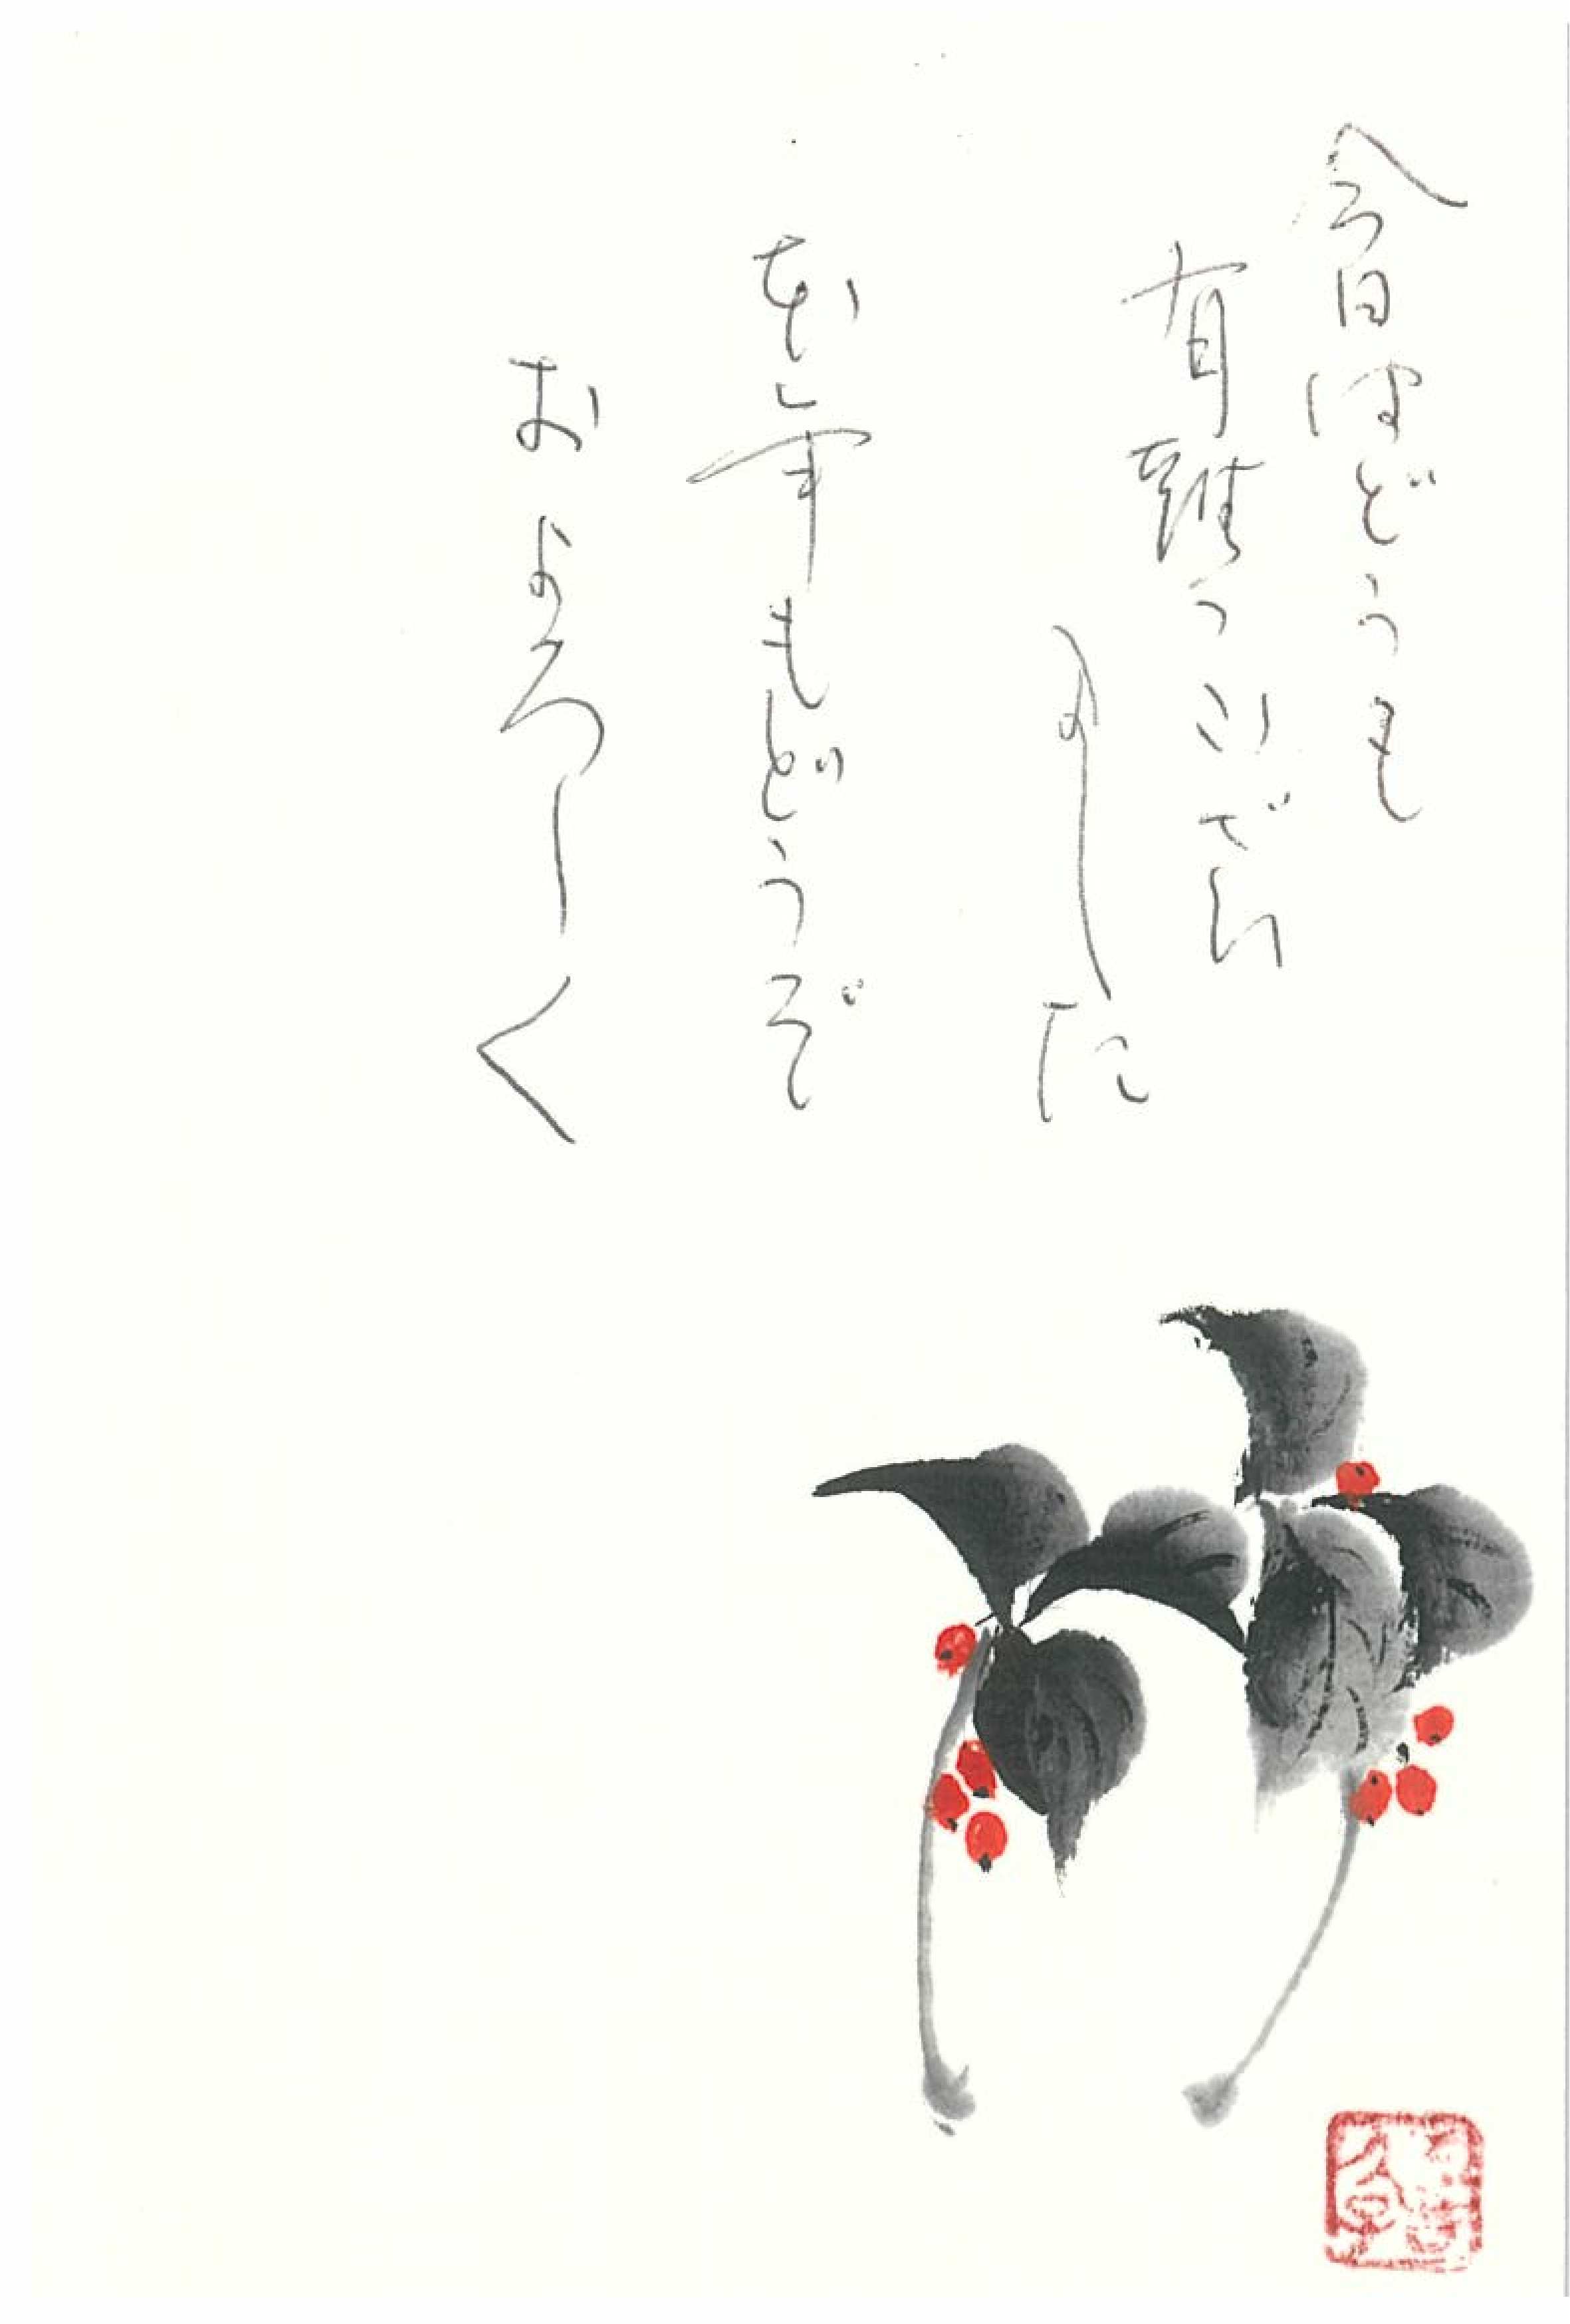 今日はどうも
有難うござい
ました
もどうぞ
およろしく